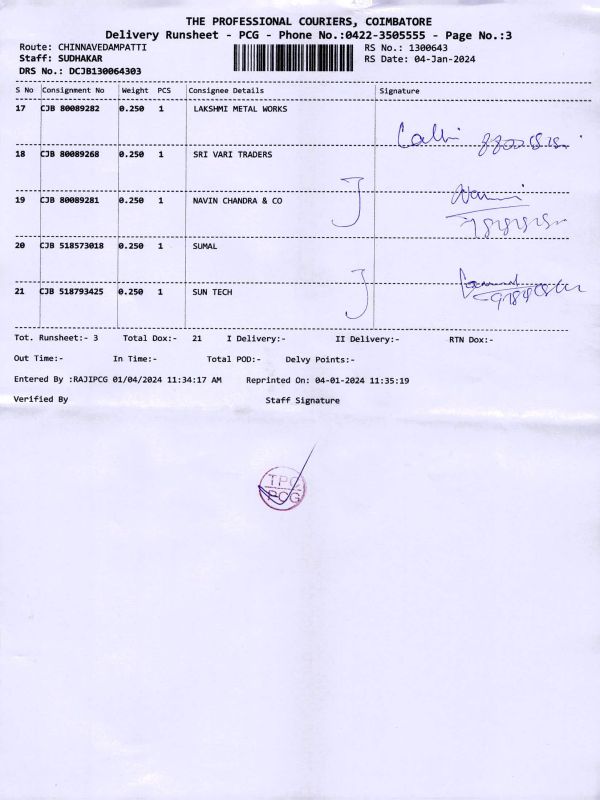 THE PROFESSIONAL COURIERS, COIMBATORE
Delivery Runsheet - PCG - Phone No.:0422-3505555 - Page No.:3
Route: CHINNAVEDAMPATTI RS No.: 1300643
Staff: SUDHAKAR RS Date: 04-Jan-2024
DRS No.: DCJB130064303
S No Consignment No Weight PCS Consignee Details Signature
17 CJB 80089282 0.250 1 LAKSHMI METAL WORKS
18 CJB 80089268 0.250 1 SRI VARI TRADERS
19 CJB 80089281 0.250 1 NAVIN CHANDRA & CO
20 CJB 518573018 0.250 1 SUMAL
21 CJB 518793425 0.250 1 SUN TECH
Tot. Runsheet:- 3 Total Dox:- 21 I Delivery:- II Delivery:- RTN Dox:-
Out Time:- In Time:- Total POD:- Delvy Points:-
Entered By :RAJIPCG 01/04/2024 11:34:17 AM Reprinted On: 04-01-2024 11:35:19
Verified By Staff Signature
TPC
PCG